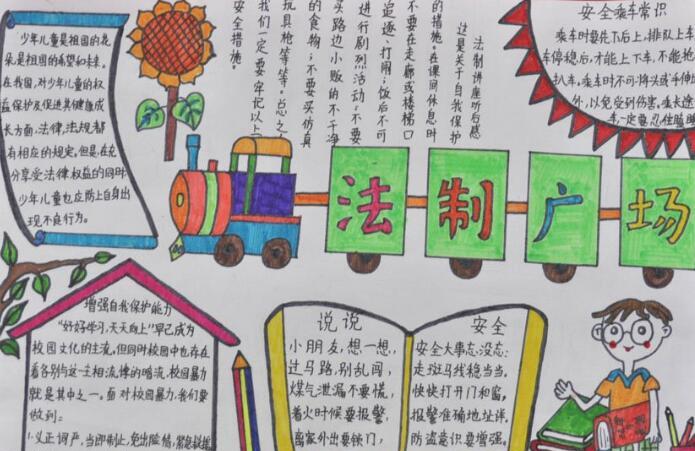 少年儿童是祖国的花
朵是祖国的希望和未来。
在我国,对少年儿童的权
益保护及促进其健康成
长方面,法律,法规都
有相应的规定,但是,在充
分享受法律权益的同时
少年儿童也应防止自身出
现不良行为。
法制讲座听后感
这是关于自我保护
的措施。在课间休息时
不要在走廊或楼梯口
追逐,打闹;饭后不可
进行剧烈活动;不要
买路边小贩的不干净
的食物;不要买仿真
玩具枪等等。总之
我们一定要牢记以上
安全措施。
安全乘车常识
乘车时要先下后上,排队上车
车停稳后,才能上下车,不能抢
扒车。乘车时不可将头或手伸
外,以免受到伤害。乘长途
车一定要忍住瞌睡
法制广场
增强自我保护能力
“好好学习,天天向上”早已成为
校园文化的主流,但同时校园中也存在
着各别与这一主相流悖的暗流,校园暴力
就是其中之一。面对校园暴力,我们要
做到:
1.义正词严,当即制止,免出险情,紧急
说说
小朋友,想一想,
过马路,别乱闯,
煤气泄漏不要慌,
着火时候要报警,
离家外出要锁门,
安全
安全大事忘没忘:
走斑马线稳当当。
快快打开门和窗,
报警准确地址详。
防盗意识要增强。